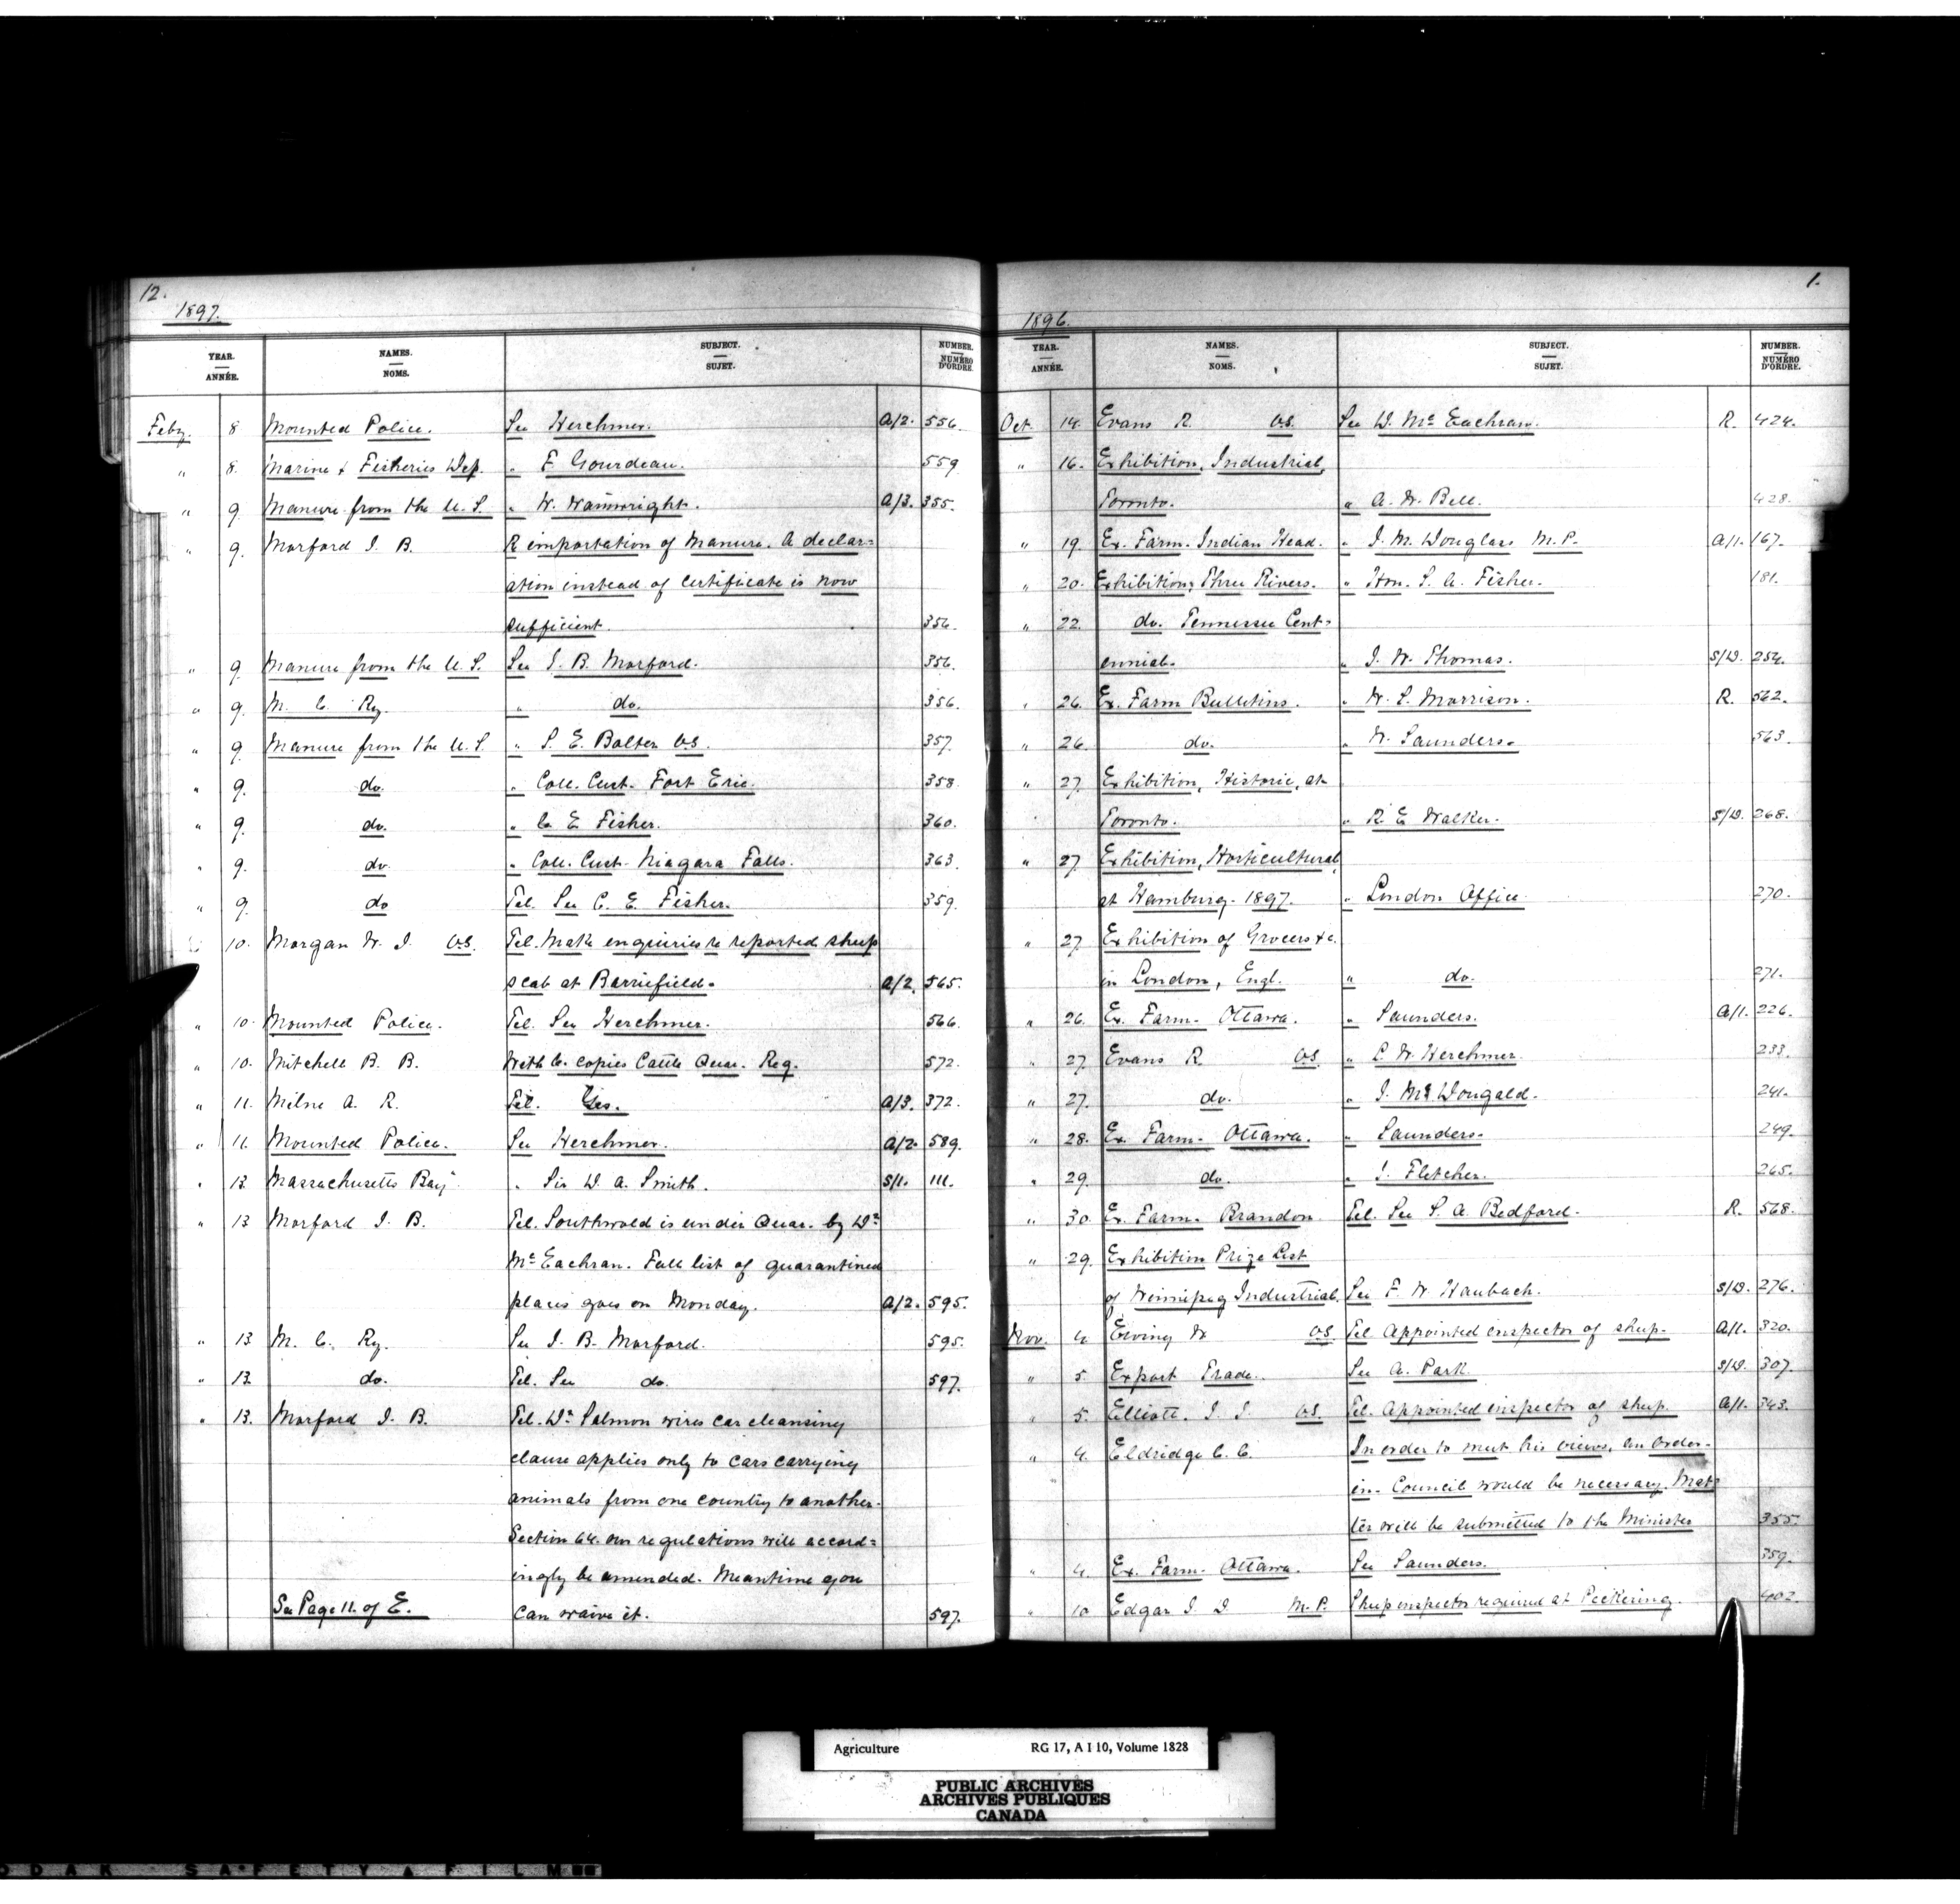 12.
1897.
YEAR. ANNÉE. NAMES. NOMS. SUBJECT. SUJET. NUMBER. NUMÉRO D'ORDRE.
Feby. 8 Mounted Police. See Herchmer. A/2. 556.
" 8. Marine & Fisheries Dep. " F Gourdeau. 559
" 9. Manure from the U.S. " W. Wainwright. A/3. 355.
" 9. Morford J. B. R importation of Manure. A declar=
ation instead of Certificate is now
sufficient. 356.
" 9. Manure from the U.S. See J. B. Morford. 356.
" 9. M. C. Ry. " do. 356.
" 9. Manure from the U.S. " S. E. Bolter V.S. 357.
" 9. do. " Coll. Cust. Fort Erie. 358
" 9. do. " C. E Fisher. 360.
" 9. do. " Coll. Cust. Niagara Falls. 363
" 9. do Tel. See C. E. Fisher. 359.
" 10. Morgan W. J. V.S. Tel. Make enquiries re reported sheep
scab at Barriefield. A/2. 565.
" 10. Mounted Police. Tel. See Herchmer. 566.
" 10. Mitchell B. B. With 6. copies Cattle Quar. Reg. 572.
" 11. Milne A. R. Tel. Yes. A/3. 372.
" 11. Mounted Police. See Herchmer. A/2. 589.
" 12. Massachusetts Bay " Sir D. A. Smith. S/1. 111.
" 13 Morford J. B. Tel. Southwold is under Quar. by Dr
McEachran. Full list of quarantined
places goes on Monday. A/2. 595.
" 13 M. C. Ry. See J. B. Morford. 595.
" 13. do. Tel. See do. 597.
" 13. Morford J. B. Tel. Dr Salmon wires car cleansing
clause applies only to cars carrying
animals from one country to another.
Section 64. our regulations will accord=
ingly be amended. Meantime you
See Page 11. of E. can waive it. 597.
1.
1896.
YEAR. ANNÉE. NAMES. NOMS. SUBJECT. SUJET. NUMBER. NUMÉRO D'ORDRE.
Oct. 14. Evans R. V.S. See D. McEachran. R. 424.
" 16. Exhibition, Industrial,
Toronto. " A. W. Bell. 428.
" 19. Ex. Farm. Indian Head. " J. M. Douglas M.P. A/1. 167.
" 20. Exhibition, Three Rivers. " Hon. S. A. Fisher. 181.
" 22. do. Tennessee Cent=
ennial. " J. W. Thomas. S/D. 254.
" 26. Ex. Farm Bulletins. " W. S. Morrison. R. 562.
" 26. do. " W. Saunders. 563.
" 27. Exhibition, Historic, at
Toronto. " R. E Walker. S/D. 268.
" 27 Exhibition, Horticultural,
at Hamburg. 1897. " London Office 270.
" 27. Exhibition of Grocers &c.
in London, Engl. " do. 271.
" 26. Ex. Farm. Ottawa. " Saunders. A/1. 226.
" 27. Evans R. V.S " L. W. Herchmer. 233.
" 27. do. " J. McDougald. 241.
" 28. Ex. Farm. Ottawa. " Saunders. 249.
" 29. do. " J. Fletcher. 265.
" 30. Ex. Farm. Brandon. Tel. See S. A. Bedford. R. 568.
" 29. Exhibition Prize List
of Winnipeg Industrial. See F. W. Haubach. S/D. 276.
Nov. 4. Ewing W V.S Tel. Appointed inspector of sheep. A/1. 320.
" 5. Export Trade. See A. Park S/D. 307.
" 5. Elliott. J. J. V.S. Tel. Appointed inspector of sheep. A/1. 343.
" 4. Eldridge C. C. In order to meet his views, an Order-
in-Council would be necessary. Mat=
ter will be submitted to the Minister 355.
" 4. Ex. Farm. Ottawa. See Saunders. 359.
" 10 Edgar J. D M.P. Sheep inspector required at Pickering. 402.
Agriculture RG 17, A I 10, Volume 1828
PUBLIC ARCHIVES
ARCHIVES PUBLIQUES
CANADA
SAFETY FILM